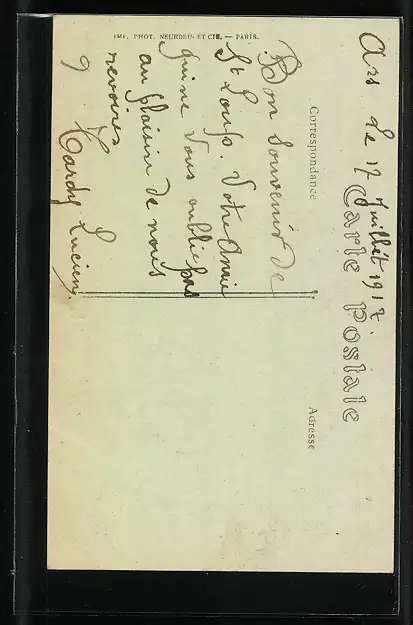 Ars le 17 Juillet 1917.
Carte Postale
Correspondance
Adresse
Bon Souvenir de
St Loup. Votre Amie
qui ne vous oublie pas
au plaisir de nous
revoires
Tardy Lucien
IMP. PHOT. NEURDEIN ET CIE. — PARIS.